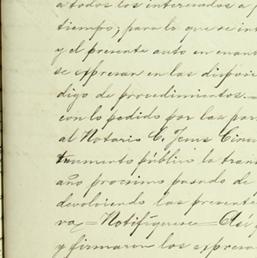 a todos los interesados a p
tiempo; para lo que se in
y el presente auto en cuant
se espresan en las disposi
digo de procedimientos.
con lo pedido por las par
al Notario C. Jesus
trumento público la tran
año procsimo pasado de
devolviendo las presente
ra= Notifíquese= Así
y firmaron los espresa